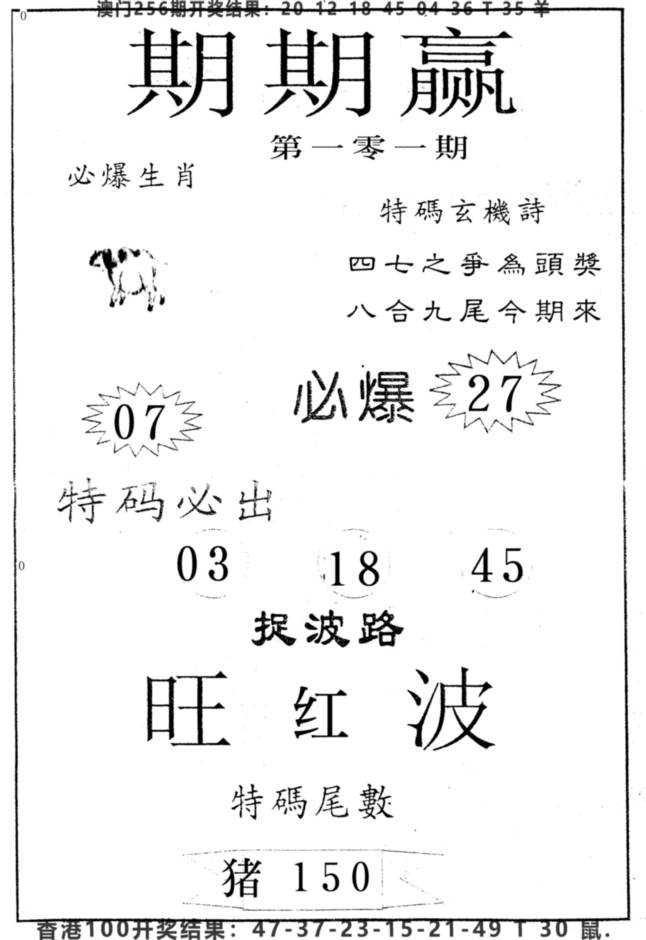 澳门256期开奖结果：20-12-18-45-04-36 T 35 羊
0
期期赢
第一零一期
必爆生肖
特碼玄機詩
四七之爭為頭獎
八合九尾今期來
必爆 27
07
特码必出
03 18 45
0
捉波路
旺红波
特碼尾數
猪 150
香港100开奖结果：47-37-23-15-21-49 T 30 鼠.